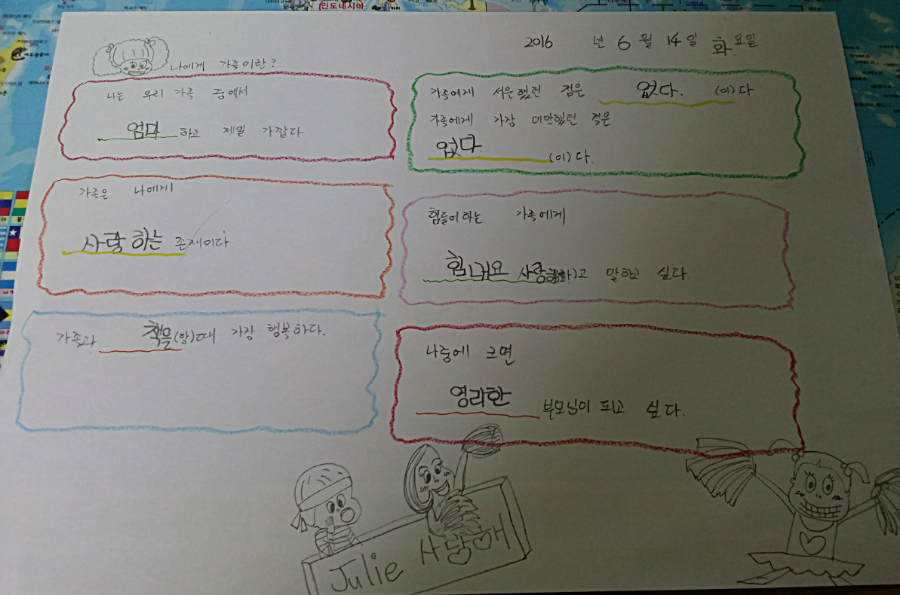 인도네시아
2016 년 6 월 14 일 화 요일
나에게 가족이란?
나는 우리 가족 중에서
엄마 하고 제일 가깝다
가족은 나에게
사랑하는 존재이다
가족과 책을 (할)때 가장 행복하다.
가족에게 서운했던 점은 없다. (이)다
가족에게 가장 미안했던 적은
없다 (이)다.
힘들어하는 가족에게
힘내요 사랑해(하)고 말하고 싶다
나중에 크면
영리한 부모님이 되고 싶다.
Julie 사랑해